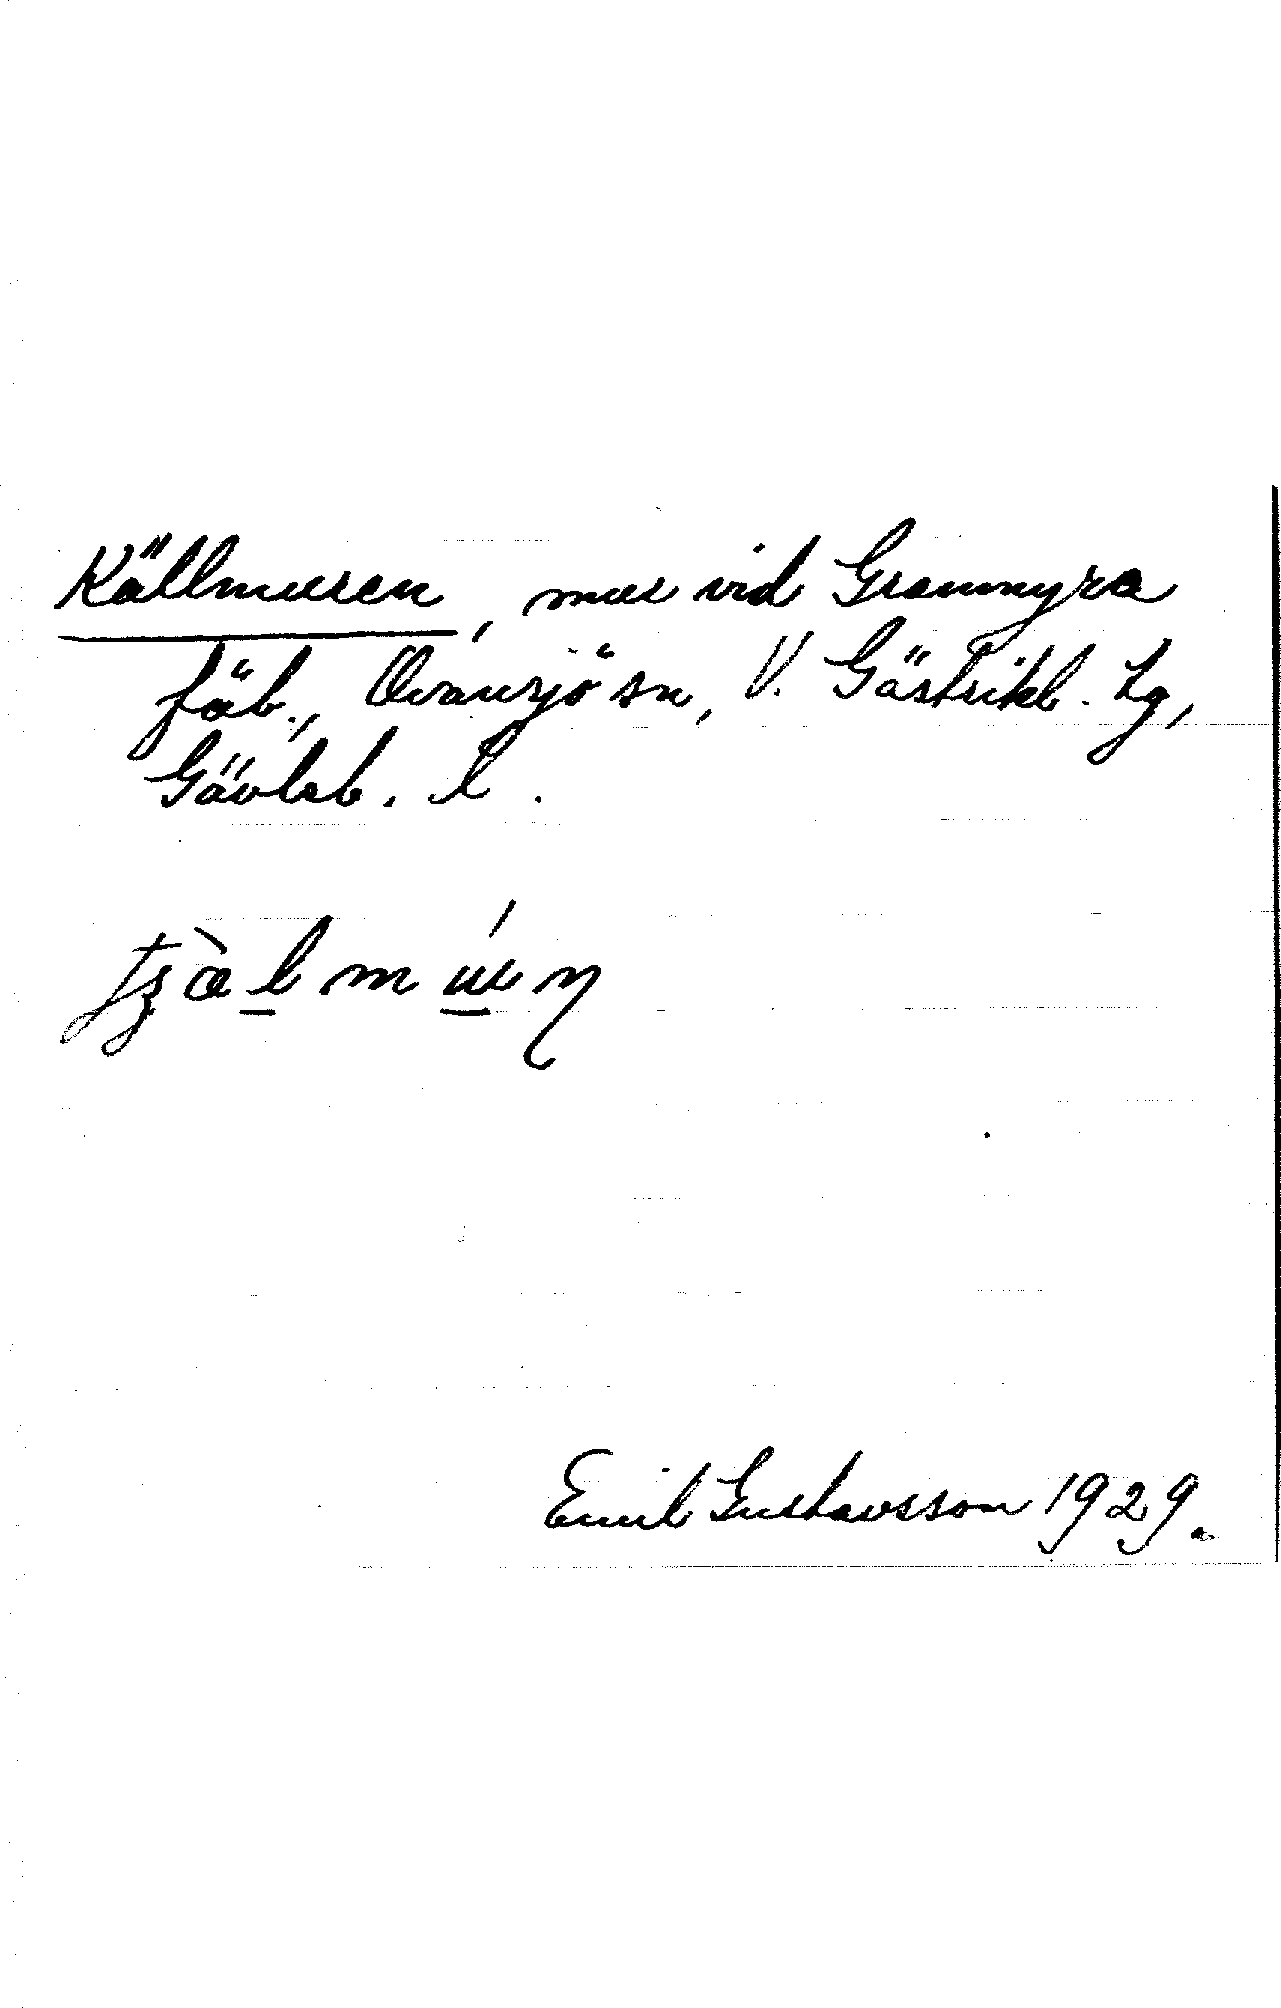 Källmuren, mur vid Granmyra
fäb., Ovansjö sn, V. Gästrikl. tg,
Gävleb. l.
Emil Gustavsson 1929.